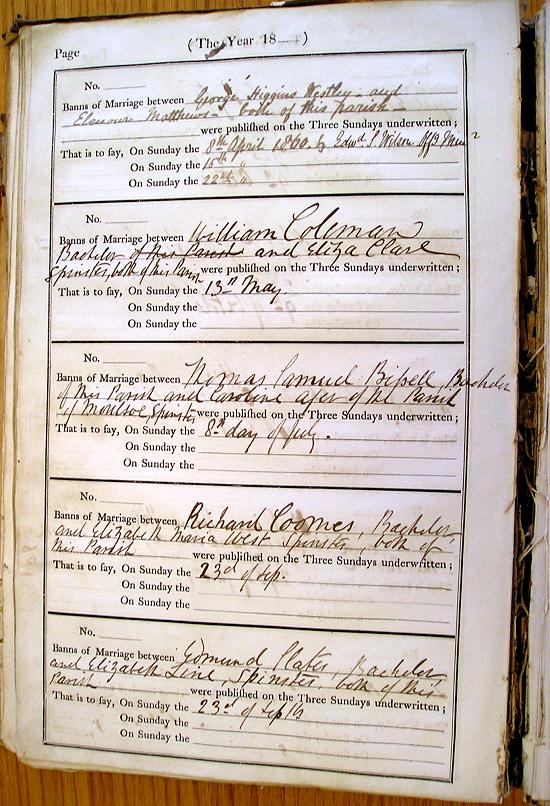 Page
( The Year 18 )
No.
Banns of Marriage between George Higgins Westley and
Eleanour Matthews both of this parish
were published on the Three Sundays underwritten ;
That is to say, On Sunday the 8th April 1860. by Edwd P. Wilson Off
On Sunday the 15th "
On Sunday the 22nd "
No.
Banns of Marriage between William Coleman
Bachelor of this Parish and Eliza Clare
Spinster, both of this Parish were published on the Three Sundays underwritten ;
That is to say, On Sunday the 13th May.
On Sunday the
On Sunday the
No.
Banns of Marriage between Thomas Samuel Bissell, Bachelor
of this Parish and Caroline of the Parish
of Moulsoe, Spinster were published on the Three Sundays underwritten ;
That is to say, On Sunday the 8th day of July.
On Sunday the
On Sunday the
No.
Banns of Marriage between Richard Coomes, Bachelor,
and Elizabeth Maria West Spinster, both of
this Parish were published on the Three Sundays underwritten ;
That is to say, On Sunday the 23d of Sep.
On Sunday the
On Sunday the
No.
Banns of Marriage between Edmund Slater, Bachelor
and Elizabeth Line, Spinster, both of this
Parish were published on the Three Sundays underwritten ;
That is to say, On Sunday the 23rd of Sep
On Sunday the
On Sunday the